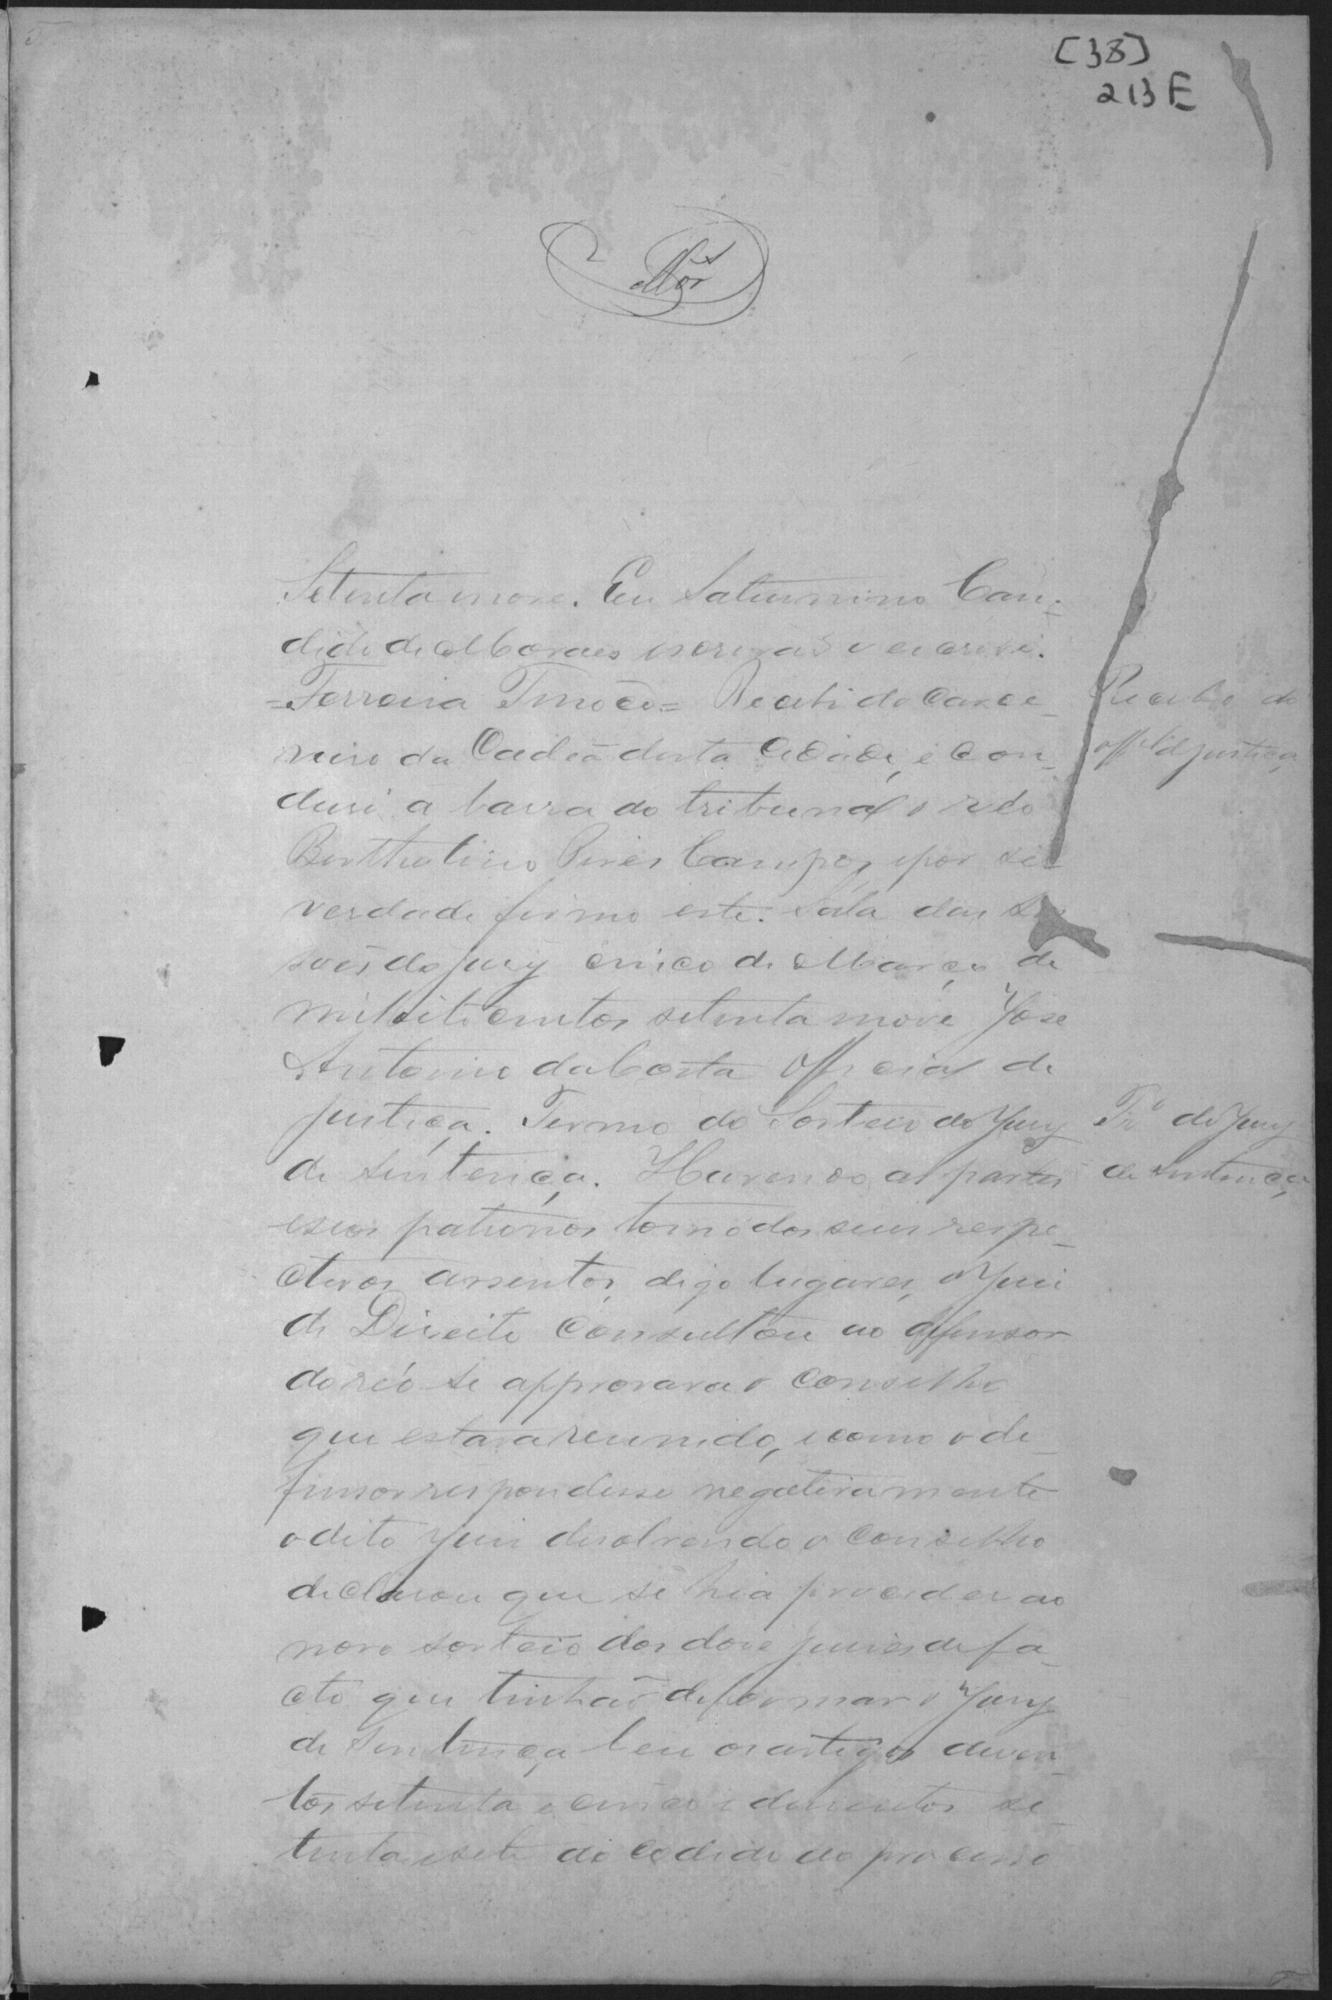 [38]
213 E
Setenta nove. Eu Saturnino Can-
dido de Moraes escrivaõ o escrevi.
=Ferreira Tinoco= Recebi do Carce-
reiro da Cadêa desta Cidade, e con-
dusi a barra do tribunal o réo
Bertholino Pires Campos, e por ser
verdade firmo este. Sala das Se
soẽs do Jury cinco de Março de
mil oito centos setenta nove José
Antonio da Costa Official de
justiça. Termo do Sorteio do Jury
de Sentença. Havendo as partes
e seus patronos tomados seus respe-
ctivos assentos, digo lugares, o Juis
de Direito Consultou ao defensor
do réo se approvava o Conselho
que estava reunido, e como o de-
fensor respondesse negativamente
o dito Juis disolvendo o Conselho
declarou que se hia proceder ao
novo sorteio dos dose juises de fa-
cto que tinhaõ de formar o Jury
de Sentença, leu os artigos dusen-
tos setenta e cinco e dusentos se-
tenta e sete do codido do processo
Recibo do
offal de justiça
Tro do Jury
de Sentença